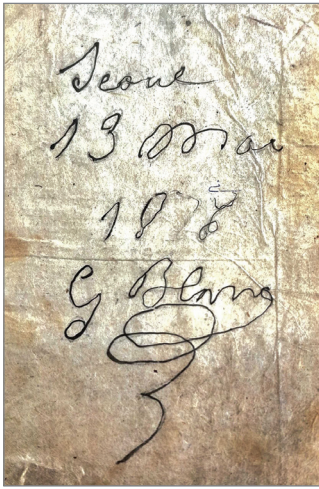 Seoul
13 Mai
1878
G Blanc